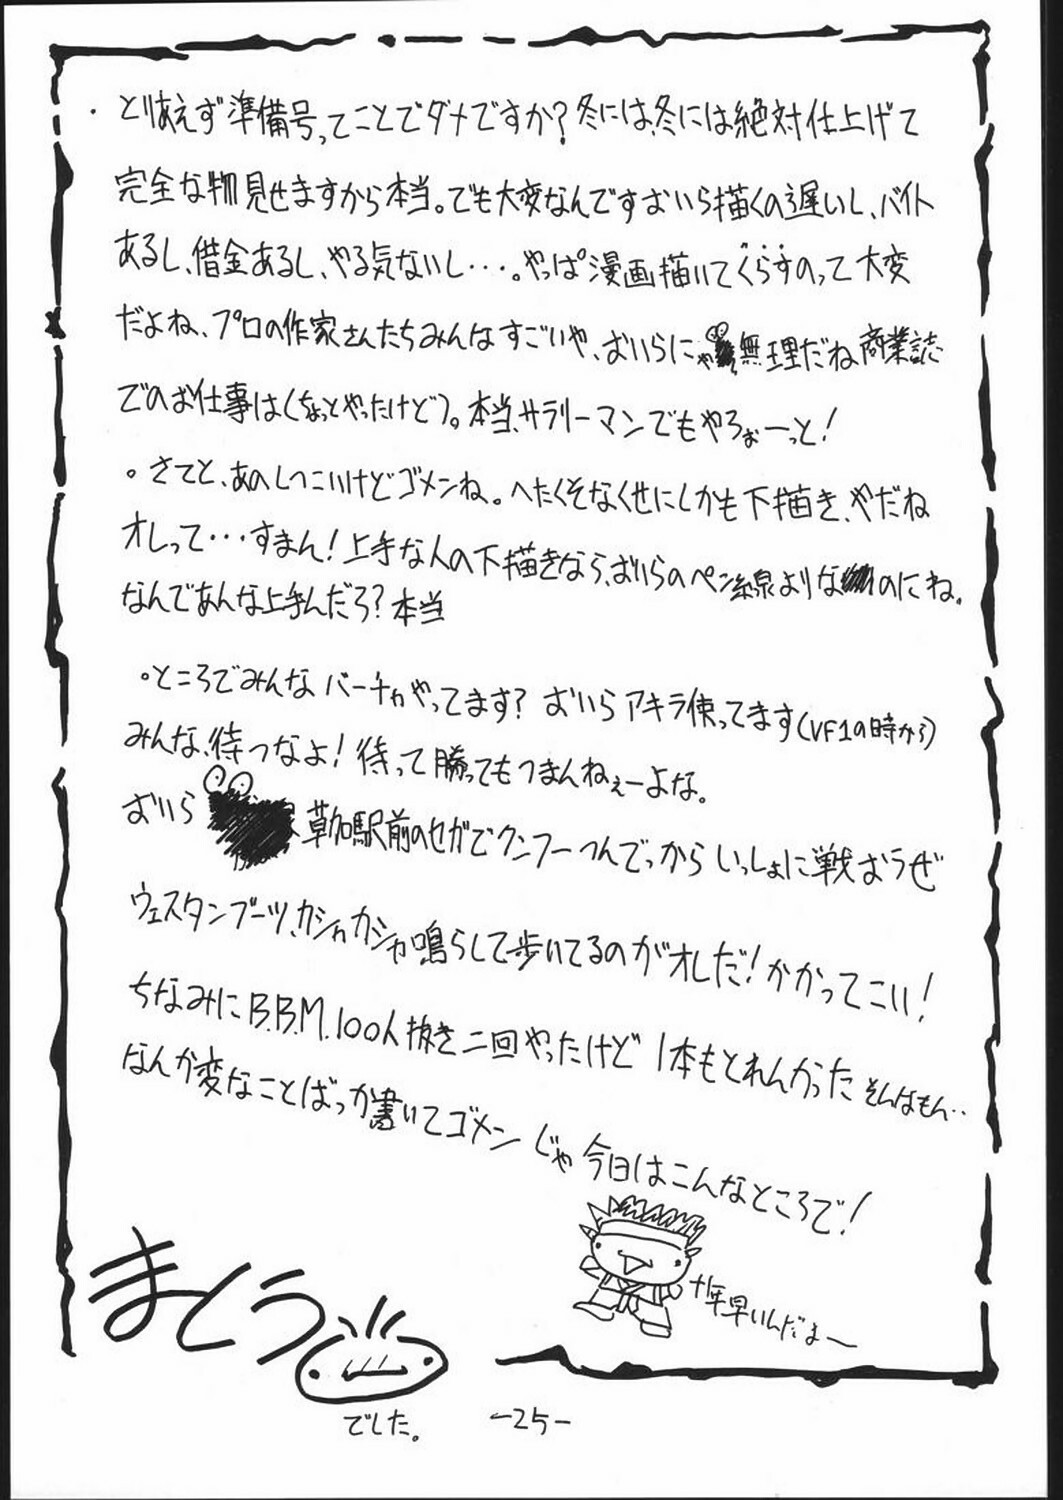 ・とりあえず準備号ってことでダメですか?冬には、冬には絶対仕上げて
完全な物見せますから本当。でも大変なんですおいら描くの遅いし、バイト
あるし、借金あるし、やる気ないし・・・。やっぱ漫画描いてくらすのって大変
だよね、プロの作家さんたちみんなすごいや、おいらにゃ無理だね商業誌
でのお仕事は(ちょっとやったけど)。本当、サラリーマンでもやろぉーっと!
。さてと、あのしつこいけどゴメンね。へたくそなくせにしかも下描き、やだね
オレって・・・すまん!上手な人の下描きなら、おいらのペン線よりな のにね。
なんであんな上手んだろ?本当
。ところでみんなバーチャやってます?おいらアキラ使ってます(VF1の時から)
みんな、待つなよ!待って勝ってもつまんねぇーよな。
おいら 草加駅前のセガでクンフーつんでっからいっしょに戦おうぜ
ウェスタンブーツ、カシャカシャ鳴らして歩いてるのがオレだ!かかってこい!
ちなみにB.B.M.100人抜き二回やったけど1本もとれんかったそんなもん・・
なんか変なことばっか書いてゴメンじゃ今日はこんなところで!
十年早いんだよー
まとう
でした。
-25-